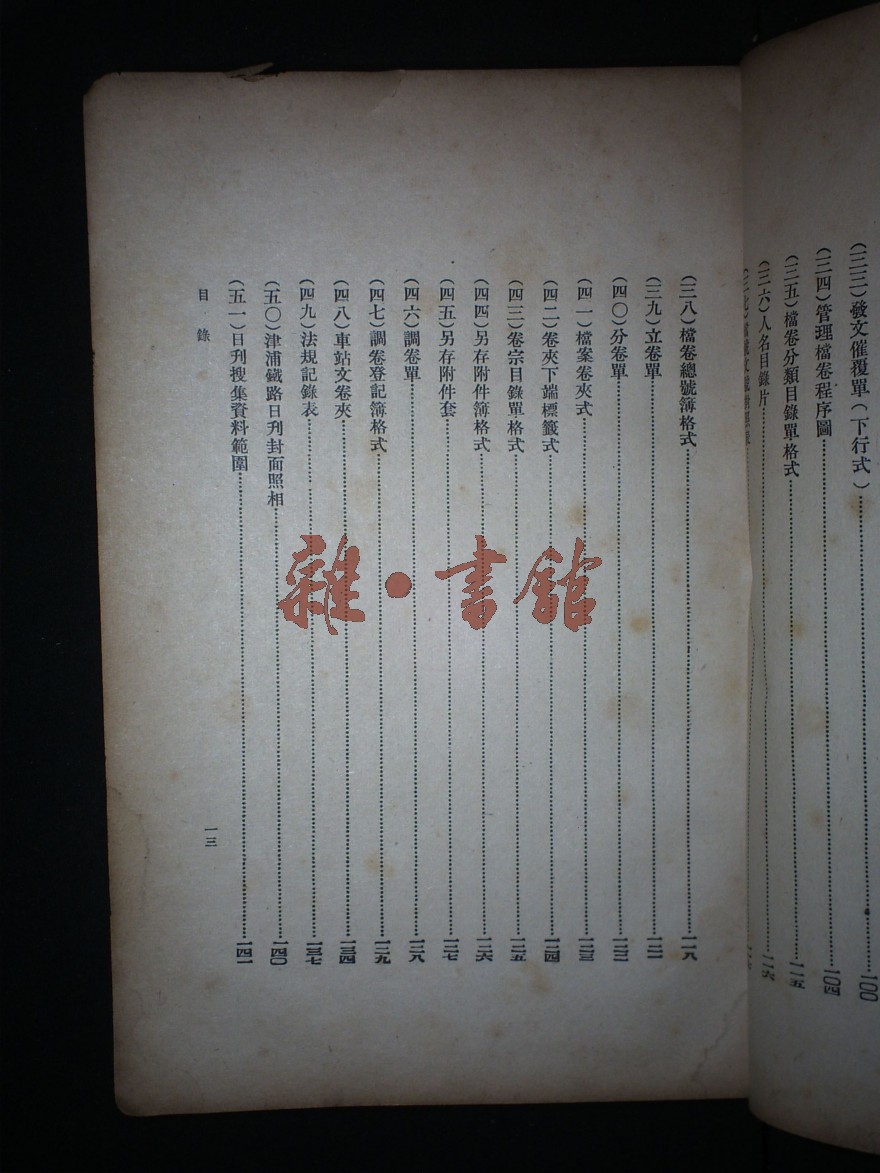 (三三)發文催覆單(下行式)……一〇〇
(三四)管理檔卷程序圖……一〇四
(三五)檔卷分類目錄單格式……一一五
(三六)人名目錄片……一一六
(三八)檔卷總號簿格式……一一八
(三九)立卷單
(四〇)分卷單
(四一)檔案卷夾式……一二三
(四二)卷夾下端標籤式……一二四
(四三)卷宗目錄單格式……一二五
(四四)另存附件簿格式……一二六
(四五)另存附件套……一二七
(四六)調卷單……一二八
(四七)調卷登記簿格式……一二九
(四八)車站文卷夾……一三四
(四九)法規記錄表……一三七
(五〇)津浦鐵路日刊封面照相……一四〇
(五一)日刊搜集資料範圍……一四一
目錄
一三
雜·書館